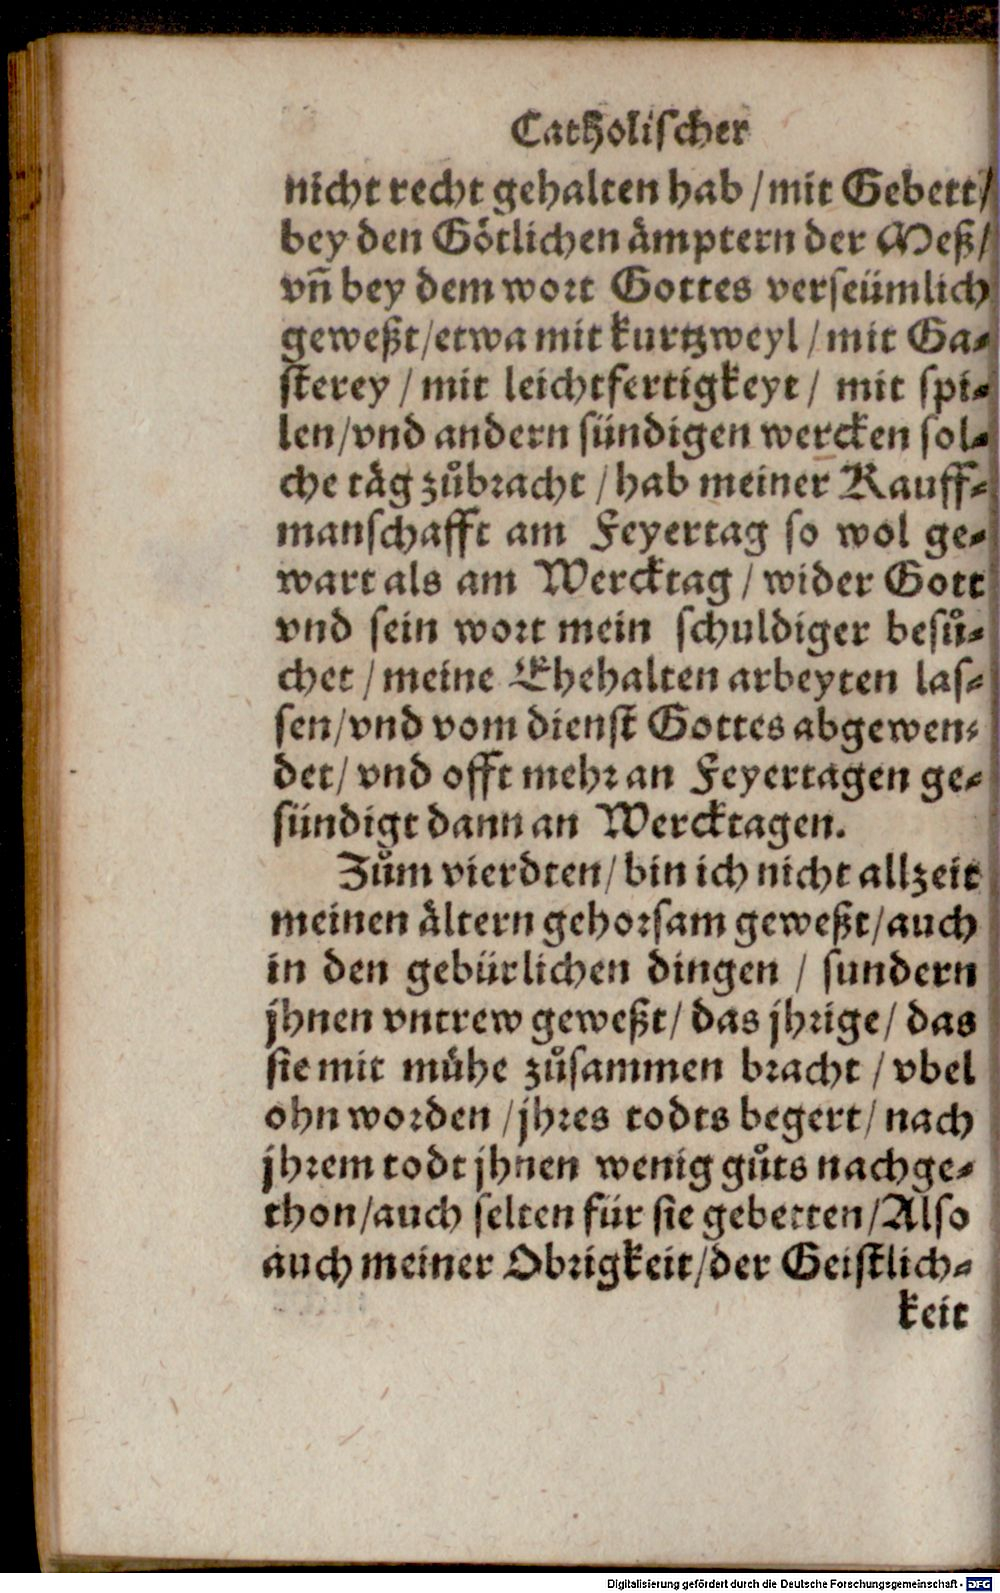 Catholischer
nicht recht gehalten hab / mit Gebett /
bey den Goͤtlichen aͤmptern der Meß /
vñ bey dem wort Gottes verseümlich
geweßt / etwa mit kurtzweyl / mit Ga⸗
sterey / mit leichtfertigkeyt / mit spi⸗
len / vnd andern sündigen wercken sol⸗
che taͤg zůbracht / hab meiner Kauff⸗
manschafft am Feyertag so wol ge⸗
wart als am Wercktag / wider Gott
vnd sein wort mein schuldiger besů⸗
chet / meine Ehehalten arbeyten las⸗
sen / vnd vom dienst Gottes abgewen⸗
det / vnd offt mehr an Feyertagen ge⸗
sündigt dann an Wercktagen.
Zům vierdten / bin ich nicht allzeit
meinen aͤltern gehorsam geweßt / auch
in den gebürlichen dingen / sundern
jhnen vntrew geweßt / das jhrige / das
sie mit mühe zůsammen bracht / vbel
ohn worden / jhres todts begert / nach
jhrem todt jhnen wenig gůts nachge⸗
thon / auch selten für sie gebetten / Also
auch meiner Obrigkeit / der Geistlich⸗
keit
Digitalisierung gefördert durch die Deutsche Forschungsgemeinschaft - DFG